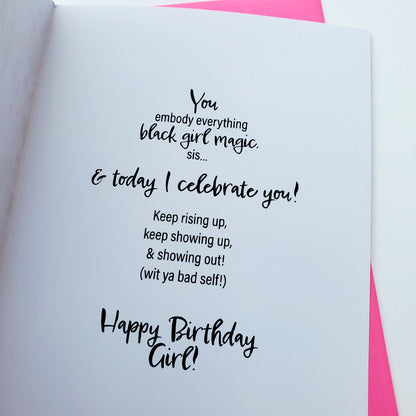 You
embody everything
black girl magic,
sis...
& today I celebrate you!
Keep rising up,
keep showing up,
& showing out!
(wit ya bad self!)
Happy Birthday
Girl!